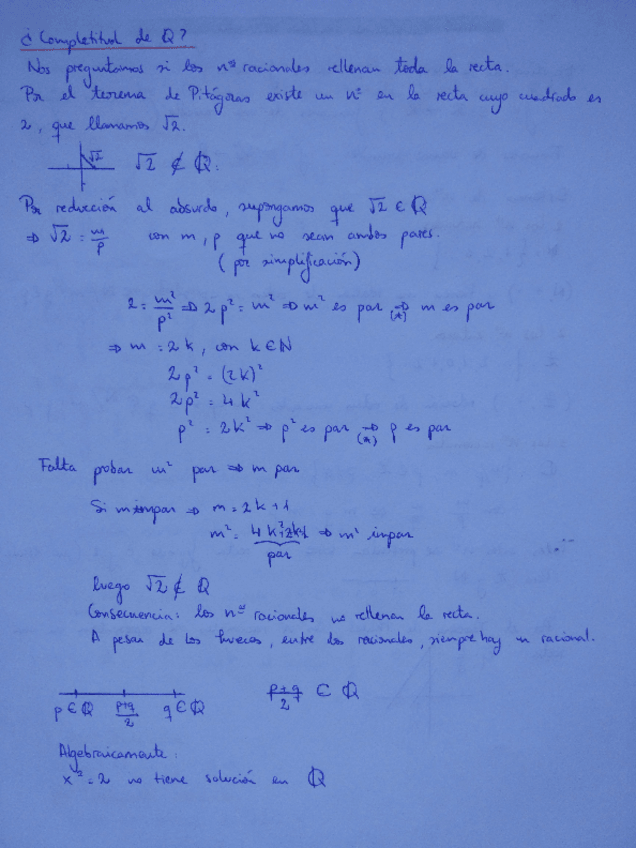 ¿Completitud de ℚ?
Nos preguntamos si los nos racionales rellenan toda la recta.
Por el teorema de Pitágoras existe un nº en la recta cuyo cuadrado es
2, que llamamos √2.
√2 √2 ∉ ℚ.
Por reducción al absurdo, supongamos que √2 ∈ ℚ
⇒ √2 = m/p con m, p que no sean ambos pares.
(por simplificación)
2 = m²/p² ⇒ 2p² = m² ⇒ m² es par ⇒(*) m es par
⇒ m = 2k, con k ∈ ℕ
2p² = (2k)²
2p² = 4k²
p² = 2k² ⇒ p² es par ⇒(*) p es par
Falta probar m² par ⇒ m par
Si m impar ⇒ m = 2k+1
m² = 4k²+2k+1 ⇒ m² impar
par
luego √2 ∉ ℚ
Consecuencia: los nos racionales no rellenan la recta.
A pesar de los huecos, entre dos racionales, siempre hay un racional.
p ∈ ℚ (p+q)/2 q ∈ ℚ (p+q)/2 ∈ ℚ
Algebraicamente:
x² = 2 no tiene solución en ℚ